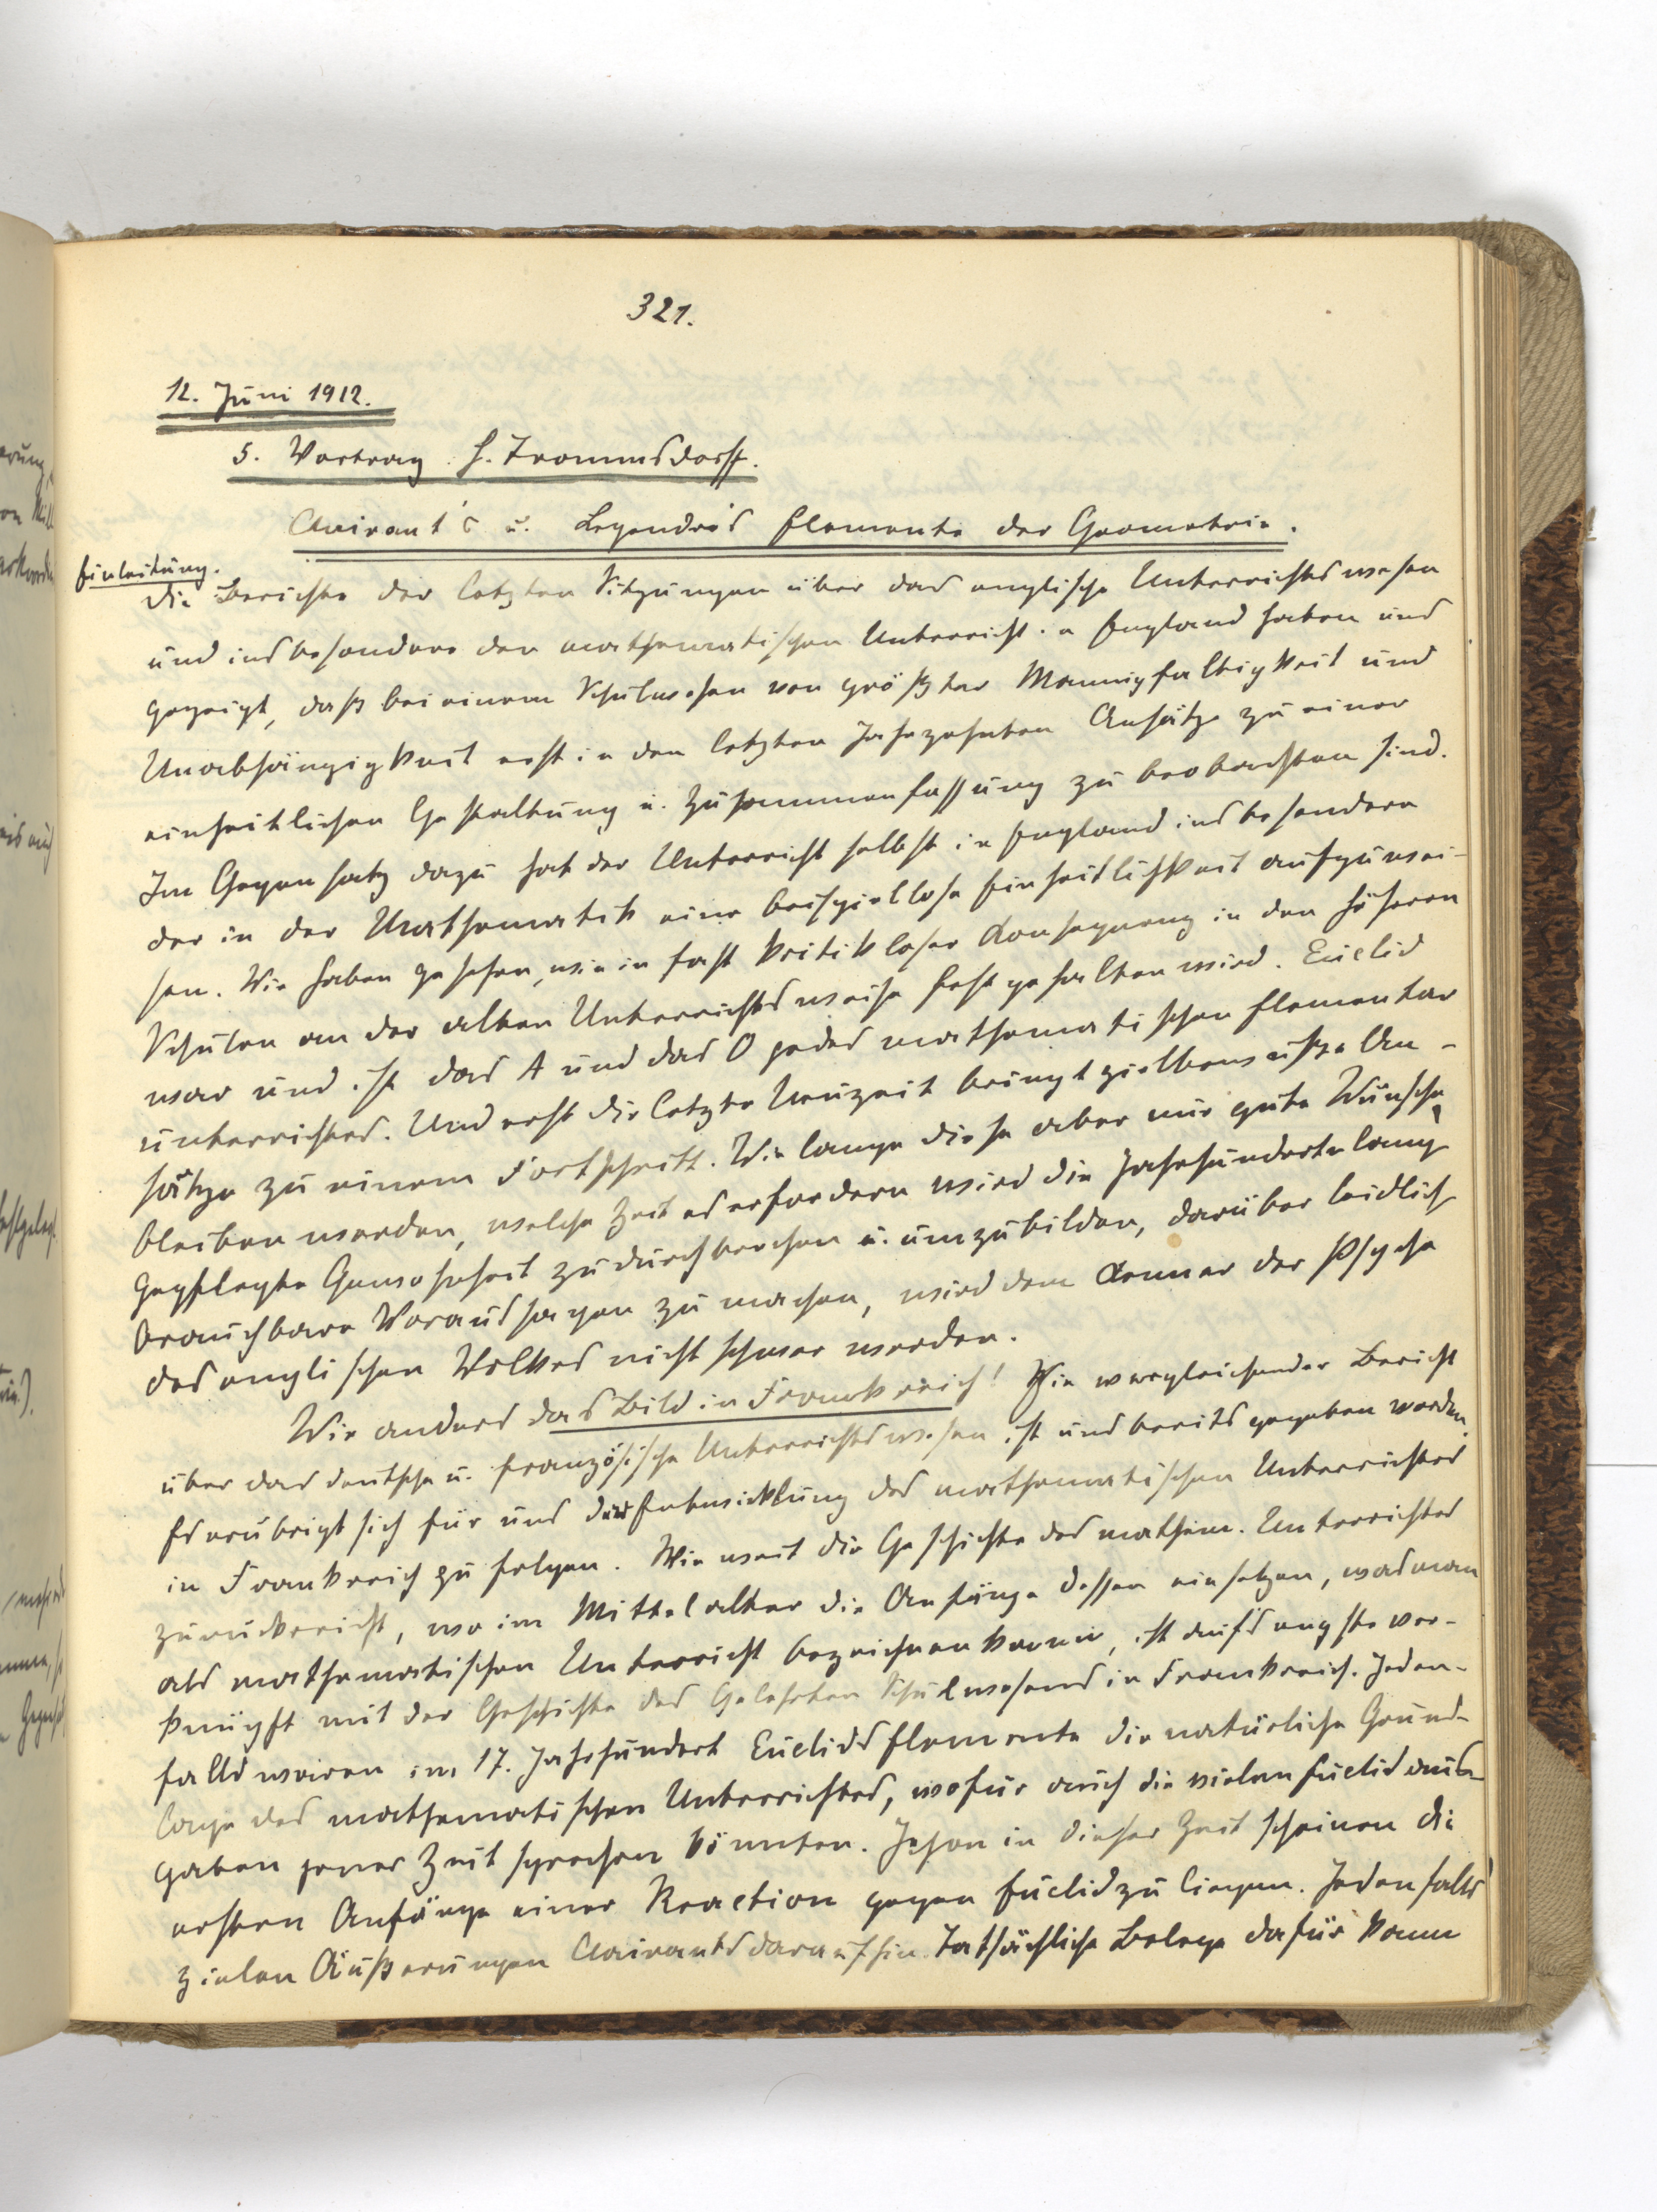 321.
12. Juni 1912.
5. Vortrag. H. Trommsdorff.
Clairaut's u. Legendre's Elemente der Geometrie.
Einleitung.
Die Berichte der letzten Sitzungen über das englische Unterrichtswesen
und insbesondere den mathematischen Unterricht in England haben uns
gezeigt, daß bei einem Schulwesen von größter Mannigfaltigkeit und
Unabhängigkeit erst in den letzten Jahrzehnten Ansätze zu einer
einheitlichen Gestaltung u. Zusammenfassung zu beobachten sind.
Im Gegensatz dazu hat der Unterricht selbst in England insbesondere
der in der Mathematik eine beispiellose Einheitlichkeit aufzuwei-
sen. Wir haben gesehen, wie in fast kritikloser Konsequenz in den höheren
Schulen an der alten Unterrichtsweise festgehalten wird. Euclid
war und ist das A und das O jedes mathematischen Elementar
unterrichtes. Und erst die letzte Neuzeit bringt zielbewußte An-
sätze zu einem Fortschritt. Wie lange diese aber nur gute Wünsche
bleiben werden, welche Zeit es erfordern wird die Jahrhunderte lang
gepflegte Gewohnheit zu durchbrechen u. umzubilden, darüber leidlich
brauchbare Voraussagen zu machen, wird dem Kenner der Psyche
des englischen Volkes nicht schwer werden.
Wie anders das Bild in Frankreich! Ein vergleichender Bericht
über das deutsche u. französische Unterrichtswesen ist uns bereits gegeben worden.
Es erübrigt sich für uns der Entwicklung des mathematischen Unterrichtes
in Frankreich zu folgen. Wie weit die Geschichte des mathem. Unterrichtes
zurückreicht, wo im Mittelalter die Anfänge dessen einsetzen, was man
als mathematischen Unterricht bezeichnen kann, ist aufs engste ver-
knüpft mit der Geschichte des Gelehrten Schulwesens in Frankreich. Jeden-
falls waren im 17. Jahrhundert Euclids Elemente die natürliche Grund-
lage des mathematischen Unterrichtes, wofür auch die vielen Euclid aus-
gaben jener Zeit sprechen könnten. Schon in dieser Zeit scheinen die
ersten Anfänge einer Reaction gegen Euclid zu liegen. Jedenfalls
zielen Äußerungen Clairauts darauf hin. Tatsächliche Belege dafür kann